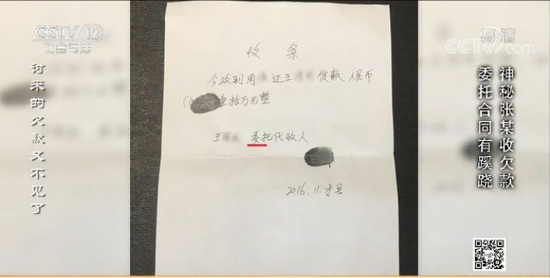 CCTV 12
社会与法
高清
CCTV.com
讨来的欠款又不见了
收条
今收到周 还王 人民币
拾万元整
王 委托代收人
2016.11.
神秘张某收欠款
委托合同有蹊跷